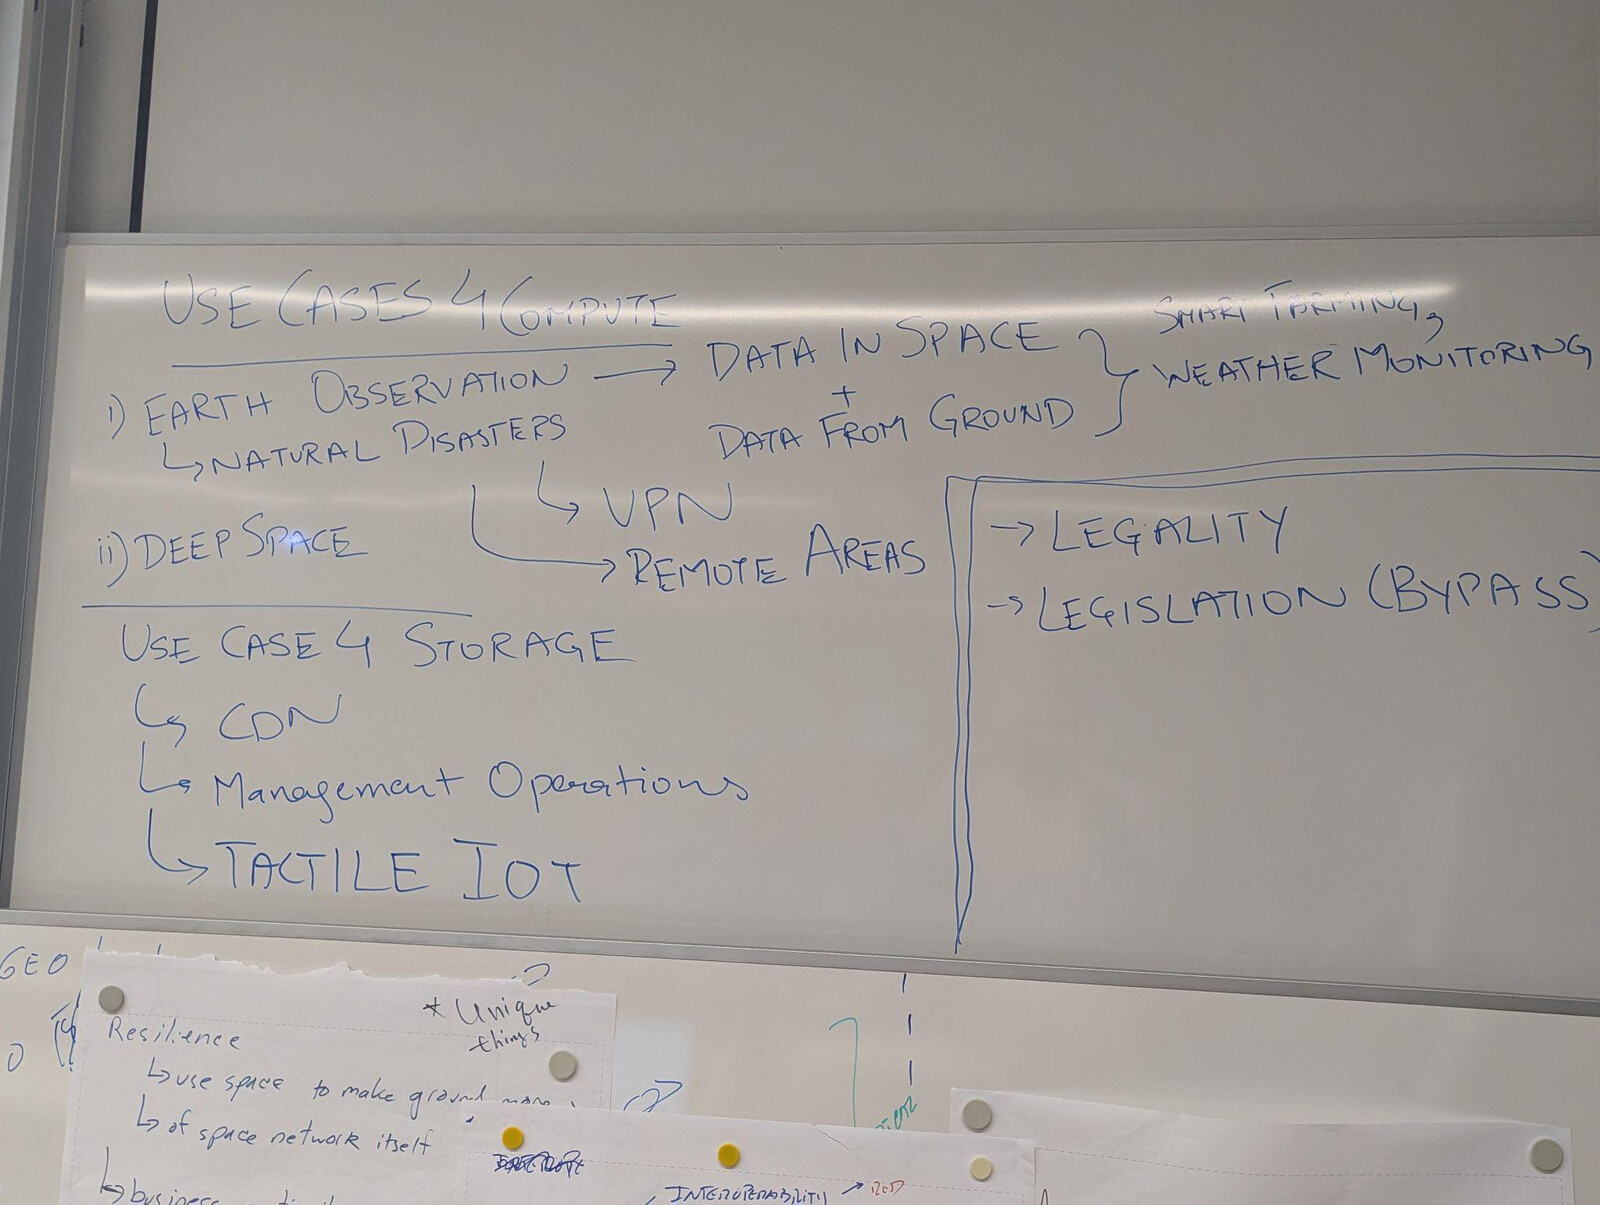 USE CASES 4 COMPUTE
i) EARTH OBSERVATION → DATA IN SPACE
+
DATA FROM GROUND
SMART FARMING,
WEATHER MONITORING
↳ NATURAL DISASTERS
↳ VPN
→ REMOTE AREAS
ii) DEEP SPACE
USE CASE 4 STORAGE
↳ CDN
↳ Management Operations
↳ TACTILE IOT
→ LEGALITY
→ LEGISLATION (BYPASS)
GEO
O
* Unique
things
Resilience
↳ use space to make ground more
↳ of space network itself
↳ business
INTEROPERABILITY →